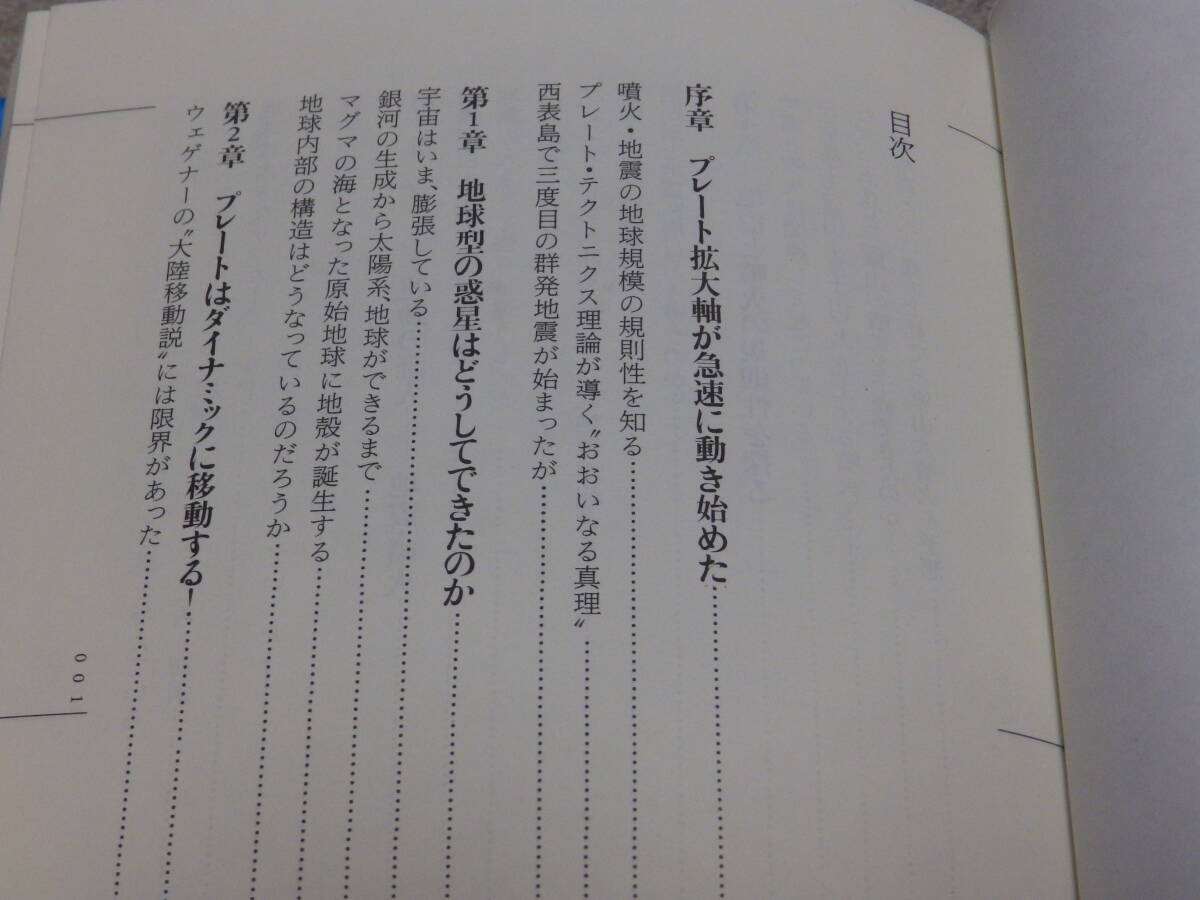 目次
序章　プレート拡大軸が急速に動き始めた……………
噴火・地震の地球規模の規則性を知る……………
プレート・テクトニクス理論が導く〝おおいなる真理〟……………
西表島で三度目の群発地震が始まったが……………
第1章　地球型の惑星はどうしてできたのか……………
宇宙はいま、膨張している……………
銀河の生成から太陽系、地球ができるまで……………
マグマの海となった原始地球に地殻が誕生する……………
地球内部の構造はどうなっているのだろうか……………
第2章　プレートはダイナミックに移動する！……………
ウェゲナーの〝大陸移動説〟には限界があった……………
001